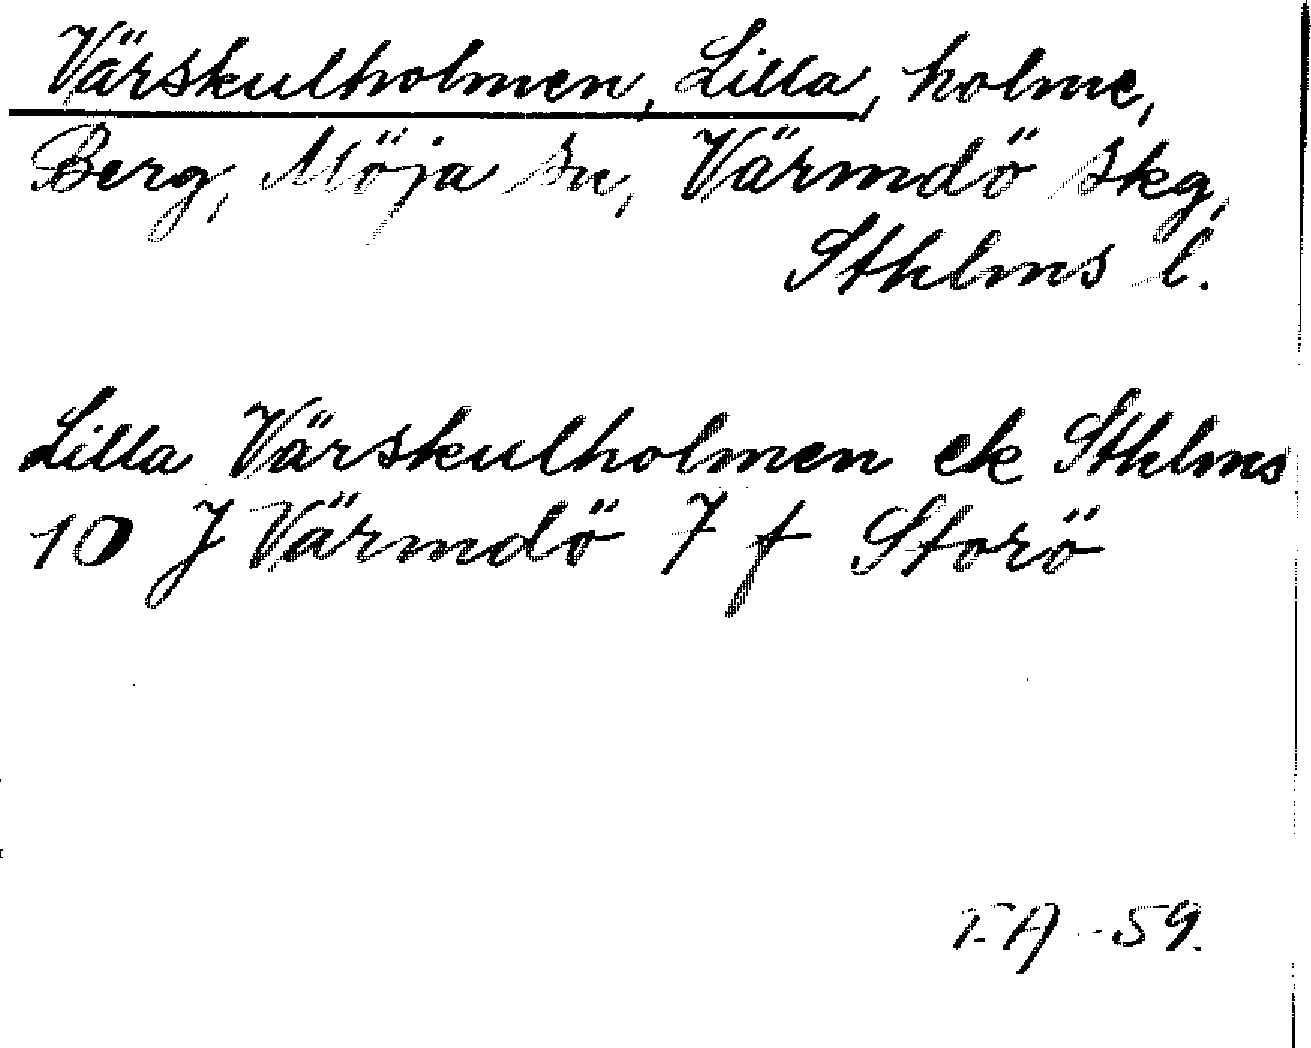 Värskulholmen, Lilla, holme,
Berg, Möja sn, Värmdö skg,
Sthlms l.
Lilla Värskulholmen ek Sthlms
10 J Värmdö 7 f Storö
T.A -59.